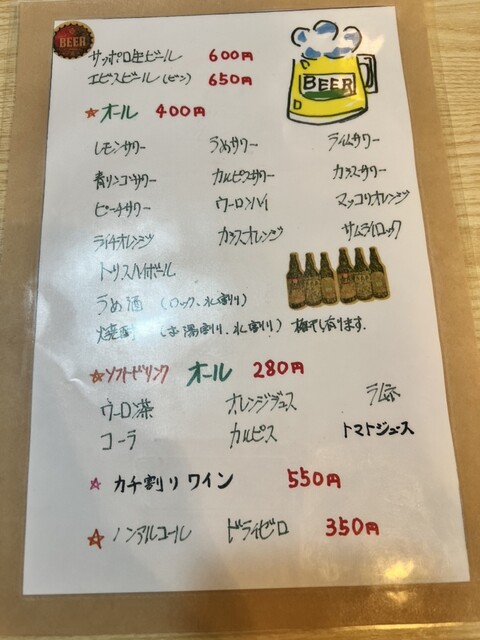 BEER
サッポロ生ビール 600円
エビスビール (ビン) 650円
BEER
☆オール 400円
レモンサワー うめサワー ライムサワー
青リンゴサワー カルピスサワー カシスサワー
ピーチサワー ウーロンハイ マッコリオレンジ
ライチオレンジ カシスオレンジ サムライロック
トリスハイボール
うめ酒 (ロック、水割り)
焼酎 (お湯割り、水割り) 梅干し有ります.
☆ソフトドリンク オール 280円
ウーロン茶 オレンジジュース ラムネ
コーラ カルピス トマトジュース
☆ カチ割りワイン 550円
☆ ノンアルコール ドライゼロ 350円